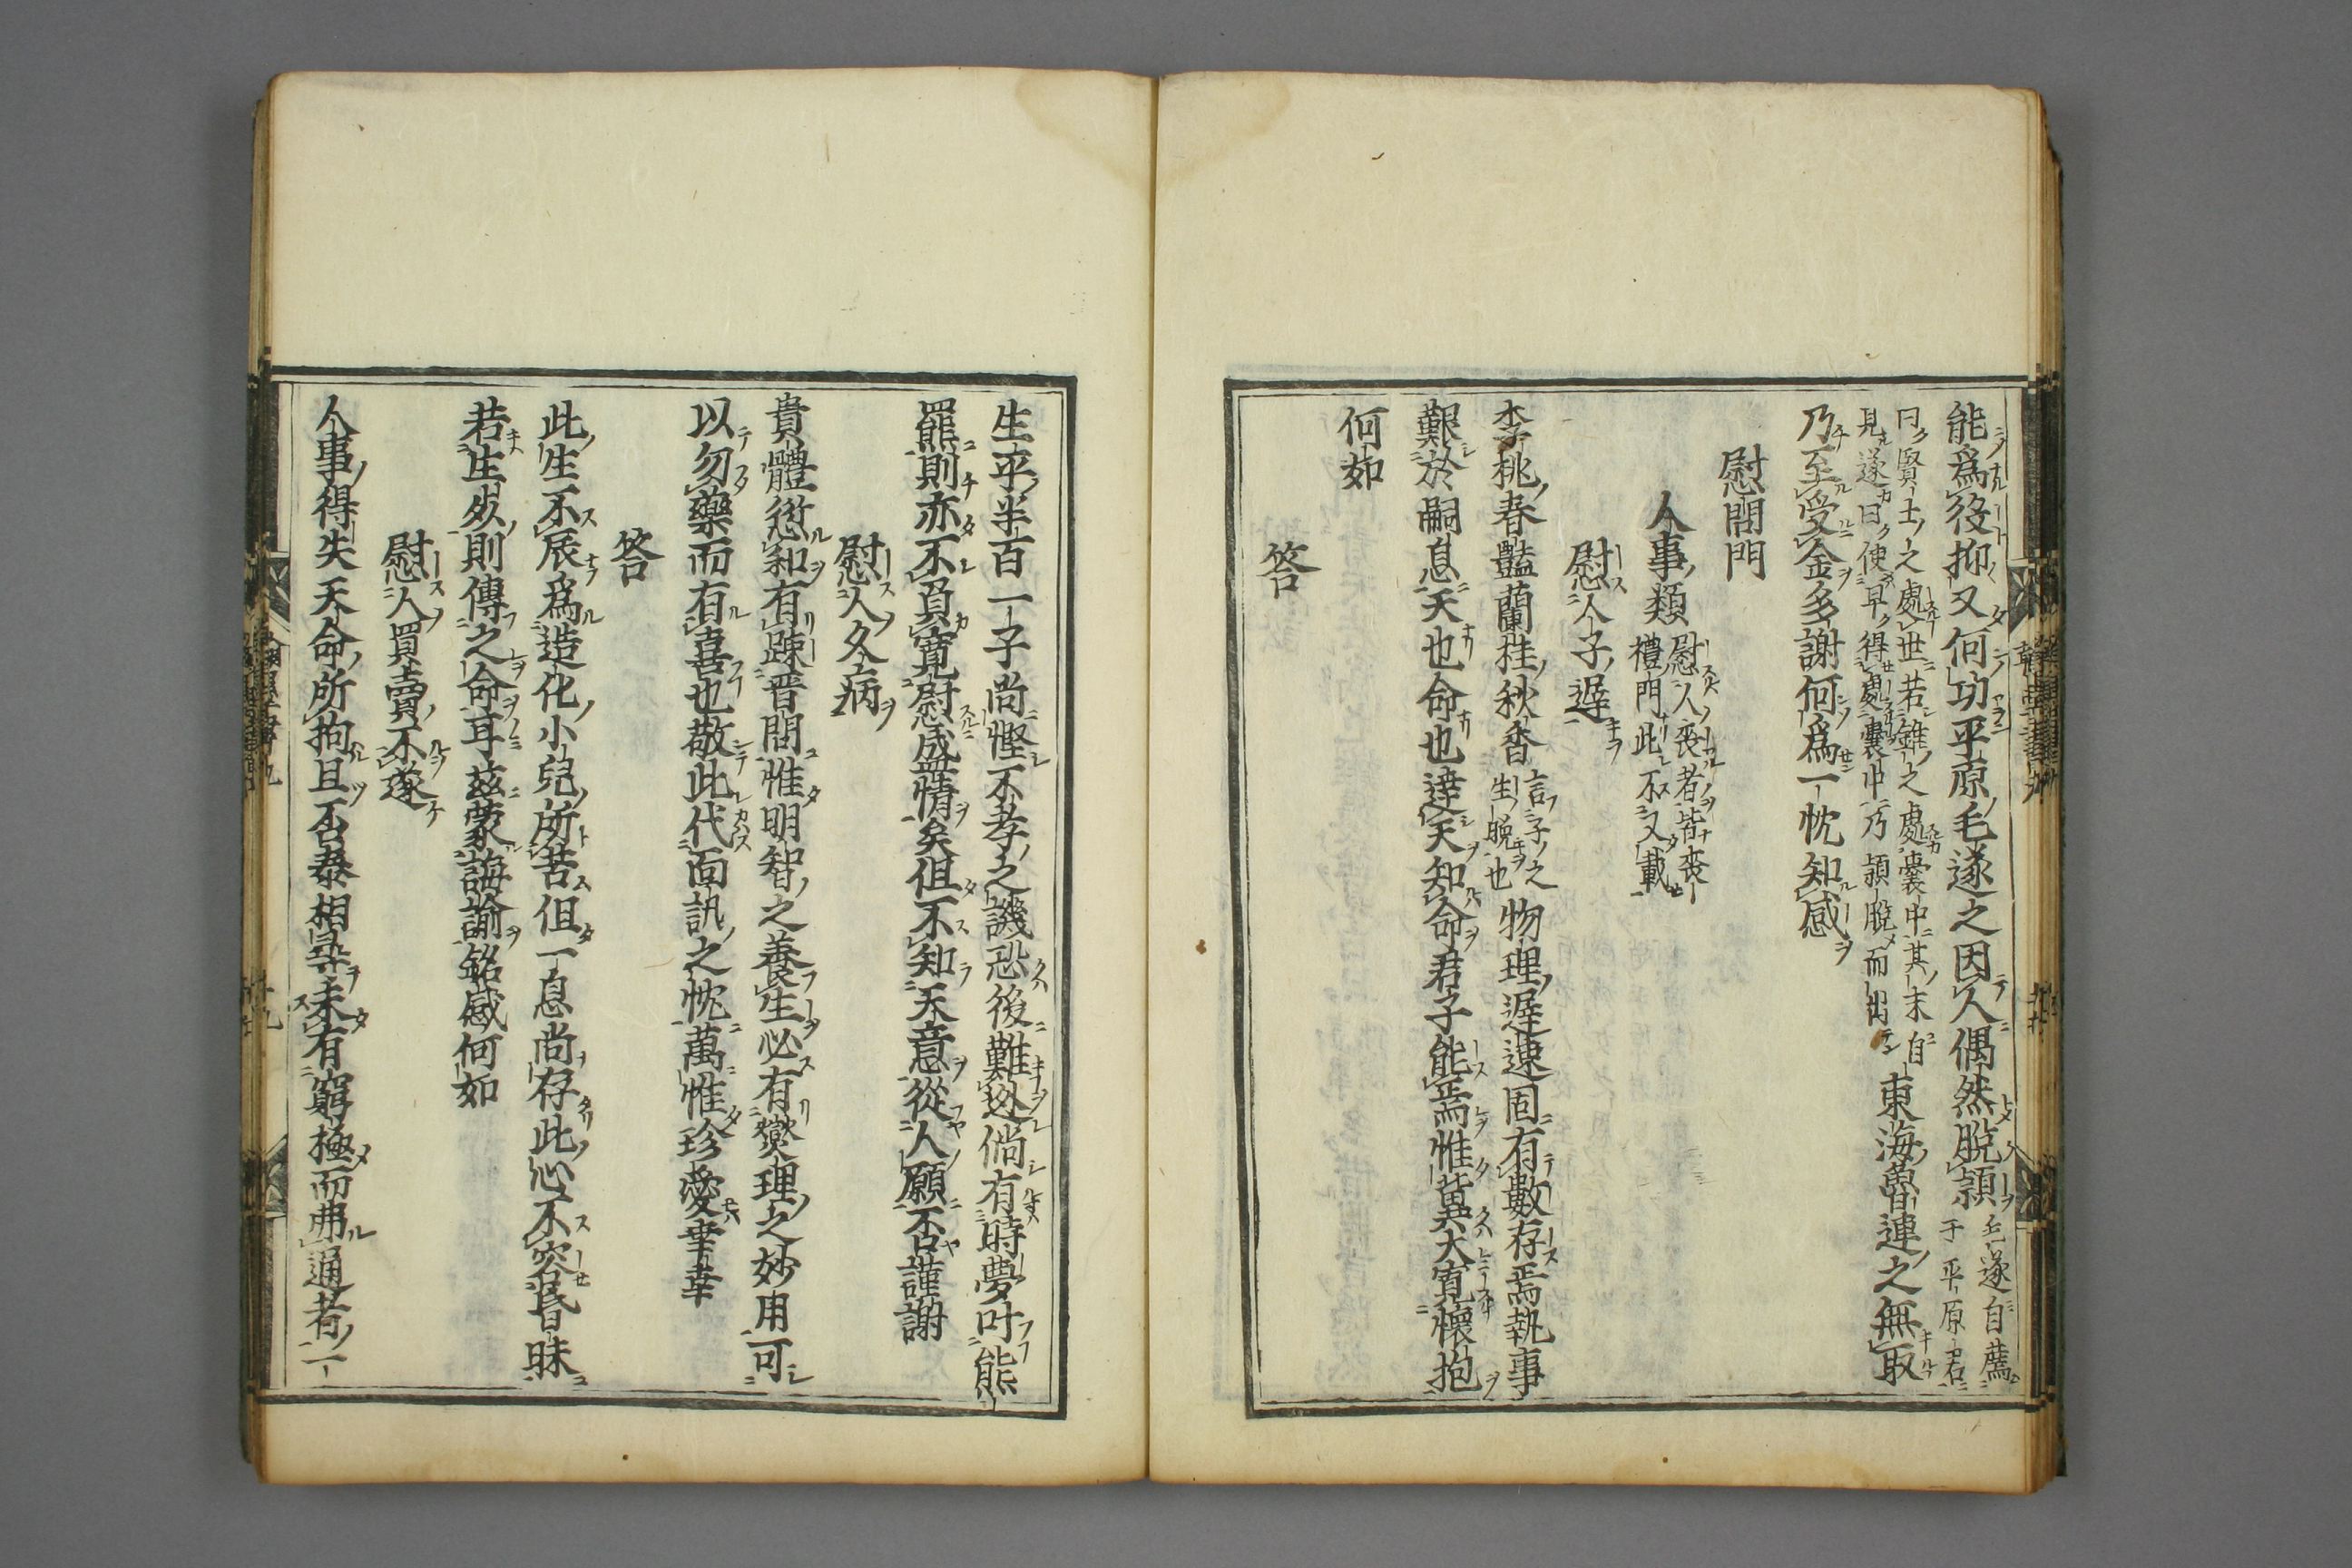 能爲役抑又何功平原毛遂之因人偶然脫頴毛遂自薦
于平原君
曰賢士之處世若錐之處囊中其末自
見遂曰使早得處囊中乃頴脫而出東海魯連之無取
乃至受金多謝何爲一忱知感
慰問門
人事類慰人喪者皆喪
禮門此不又載
慰人子遲
李桃春豔蘭桂秋香言子之
生晚也物理遲速固有數存焉執事
艱於嗣息天也命也達天知命君子能焉惟冀大寬懷抱
何如
答
生平半百一子尚慳不孝之譏恐後難逃倘有時夢叶熊
羆則亦不負寬慰盛情矣但不知天意從人願否謹謝
慰人久病
貴體愆和有踈晋問惟明智之養生必有燮理之妙用可
以勿藥而有喜也敬此代面訊之忱萬惟珍愛幸幸
答
此生不辰爲造化小兒所苦但一息尚存此心不容昏昧
若生死則傳之命耳茲蒙誨諭銘感何如
慰人買賣不遂
人事得失天命所拘且否泰相尋未有窮極而弗通者一